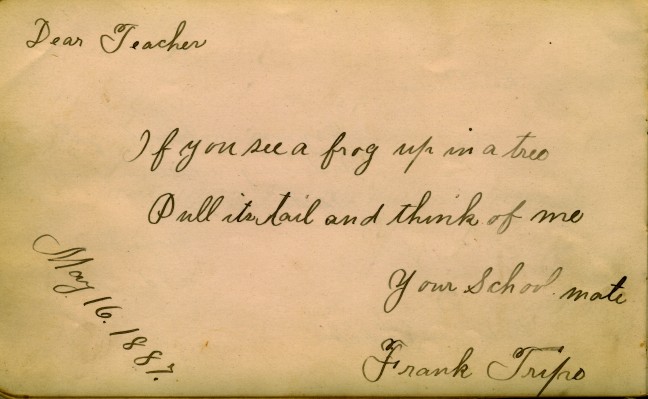 Dear Teacher
If you see a frog up in a tree
Pull its tail and think of me
Your School mate
Frank
May 16. 1887.